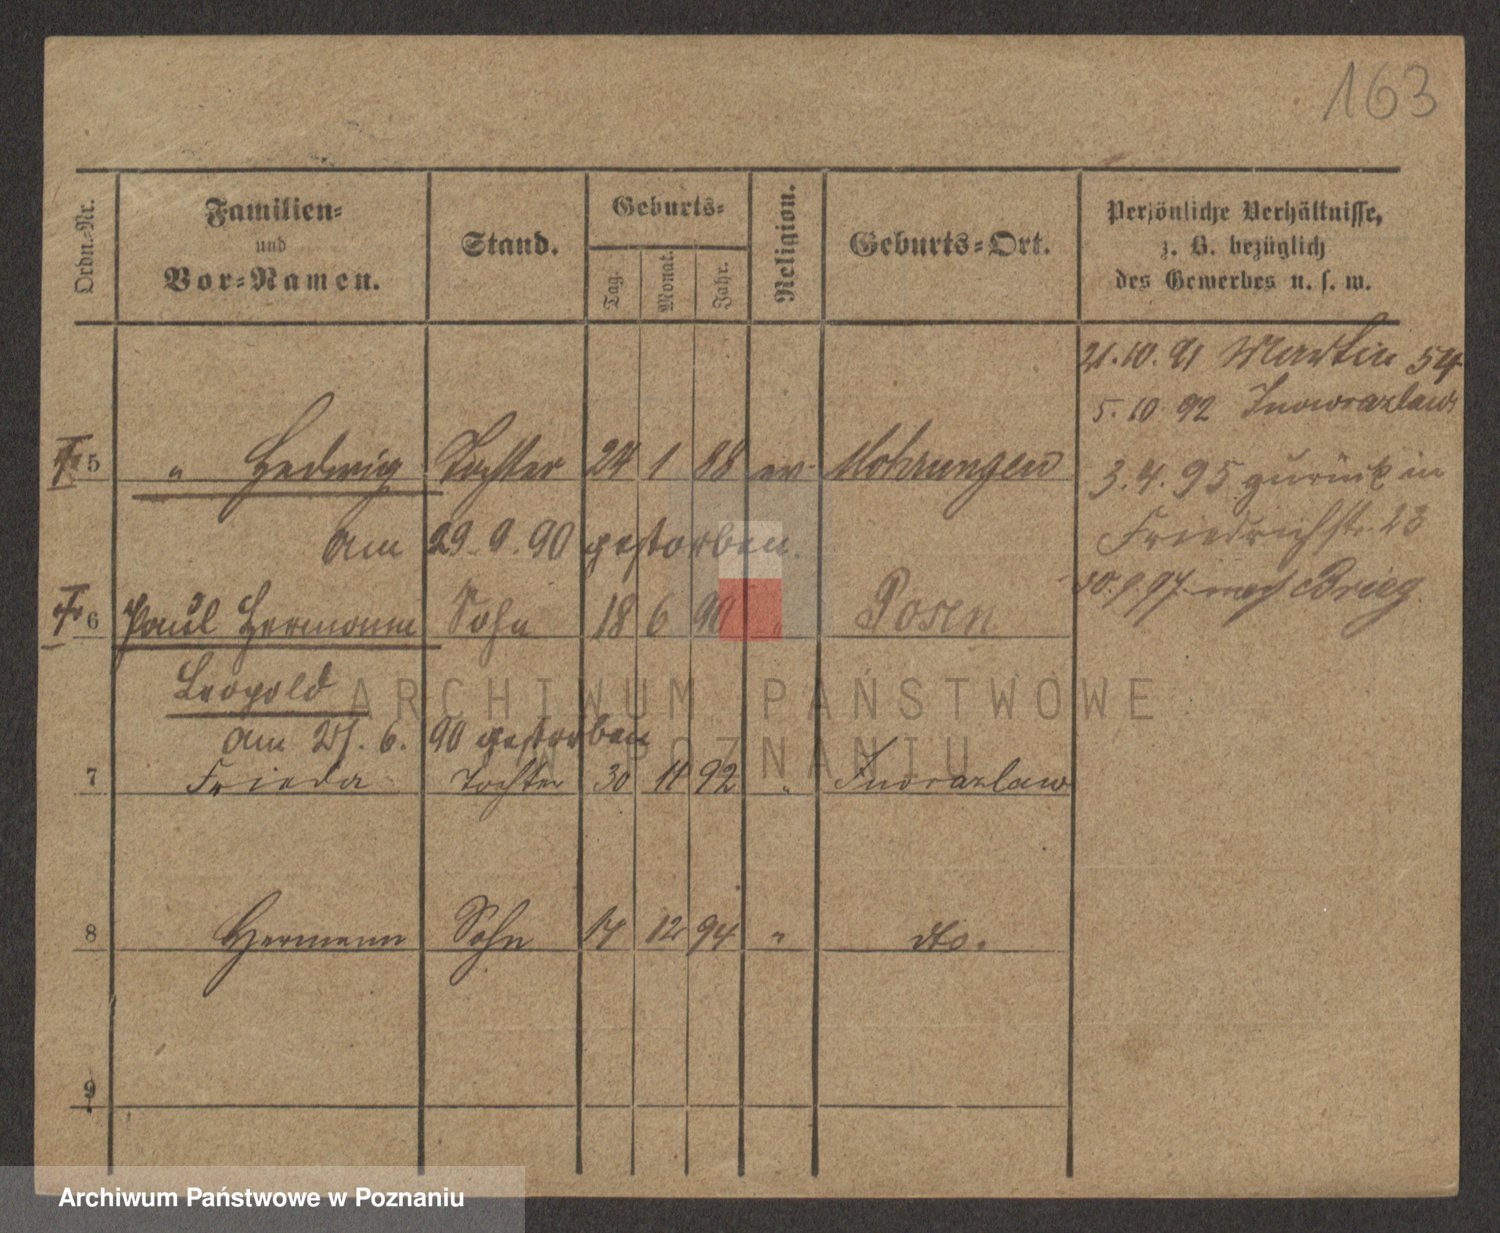 163
Ordn.-Nr.
Familien-
und
Vor-Namen.
Stand.
Geburts-
Tag.
Monat.
Jahr.
Religion.
Geburts-Ort.
Persönliche Verhältnisse,
z. B. bezüglich
des Gewerbes u. s. w.
21.10.91 Martin 54
5.10.92 Inowrazlaw
5 " Hedwig Tochter 24 1 88 ev Mohrungen
3.4.95 zurück in
Friedrichstr. 23
am 29.9.90 gestorben.
nach Brieg
6 Paul Hermann Sohn 18 6 90 " Posen
Leopold
am 21.6.90 gestorben
7 Frieda Tochter 30 11 92 " Inowrazlaw
8 Hermann Sohn 14 12 94 " dto.
9
ARCHIWUM PAŃSTWOWE
W POZNANIU
Archiwum Państwowe w Poznaniu